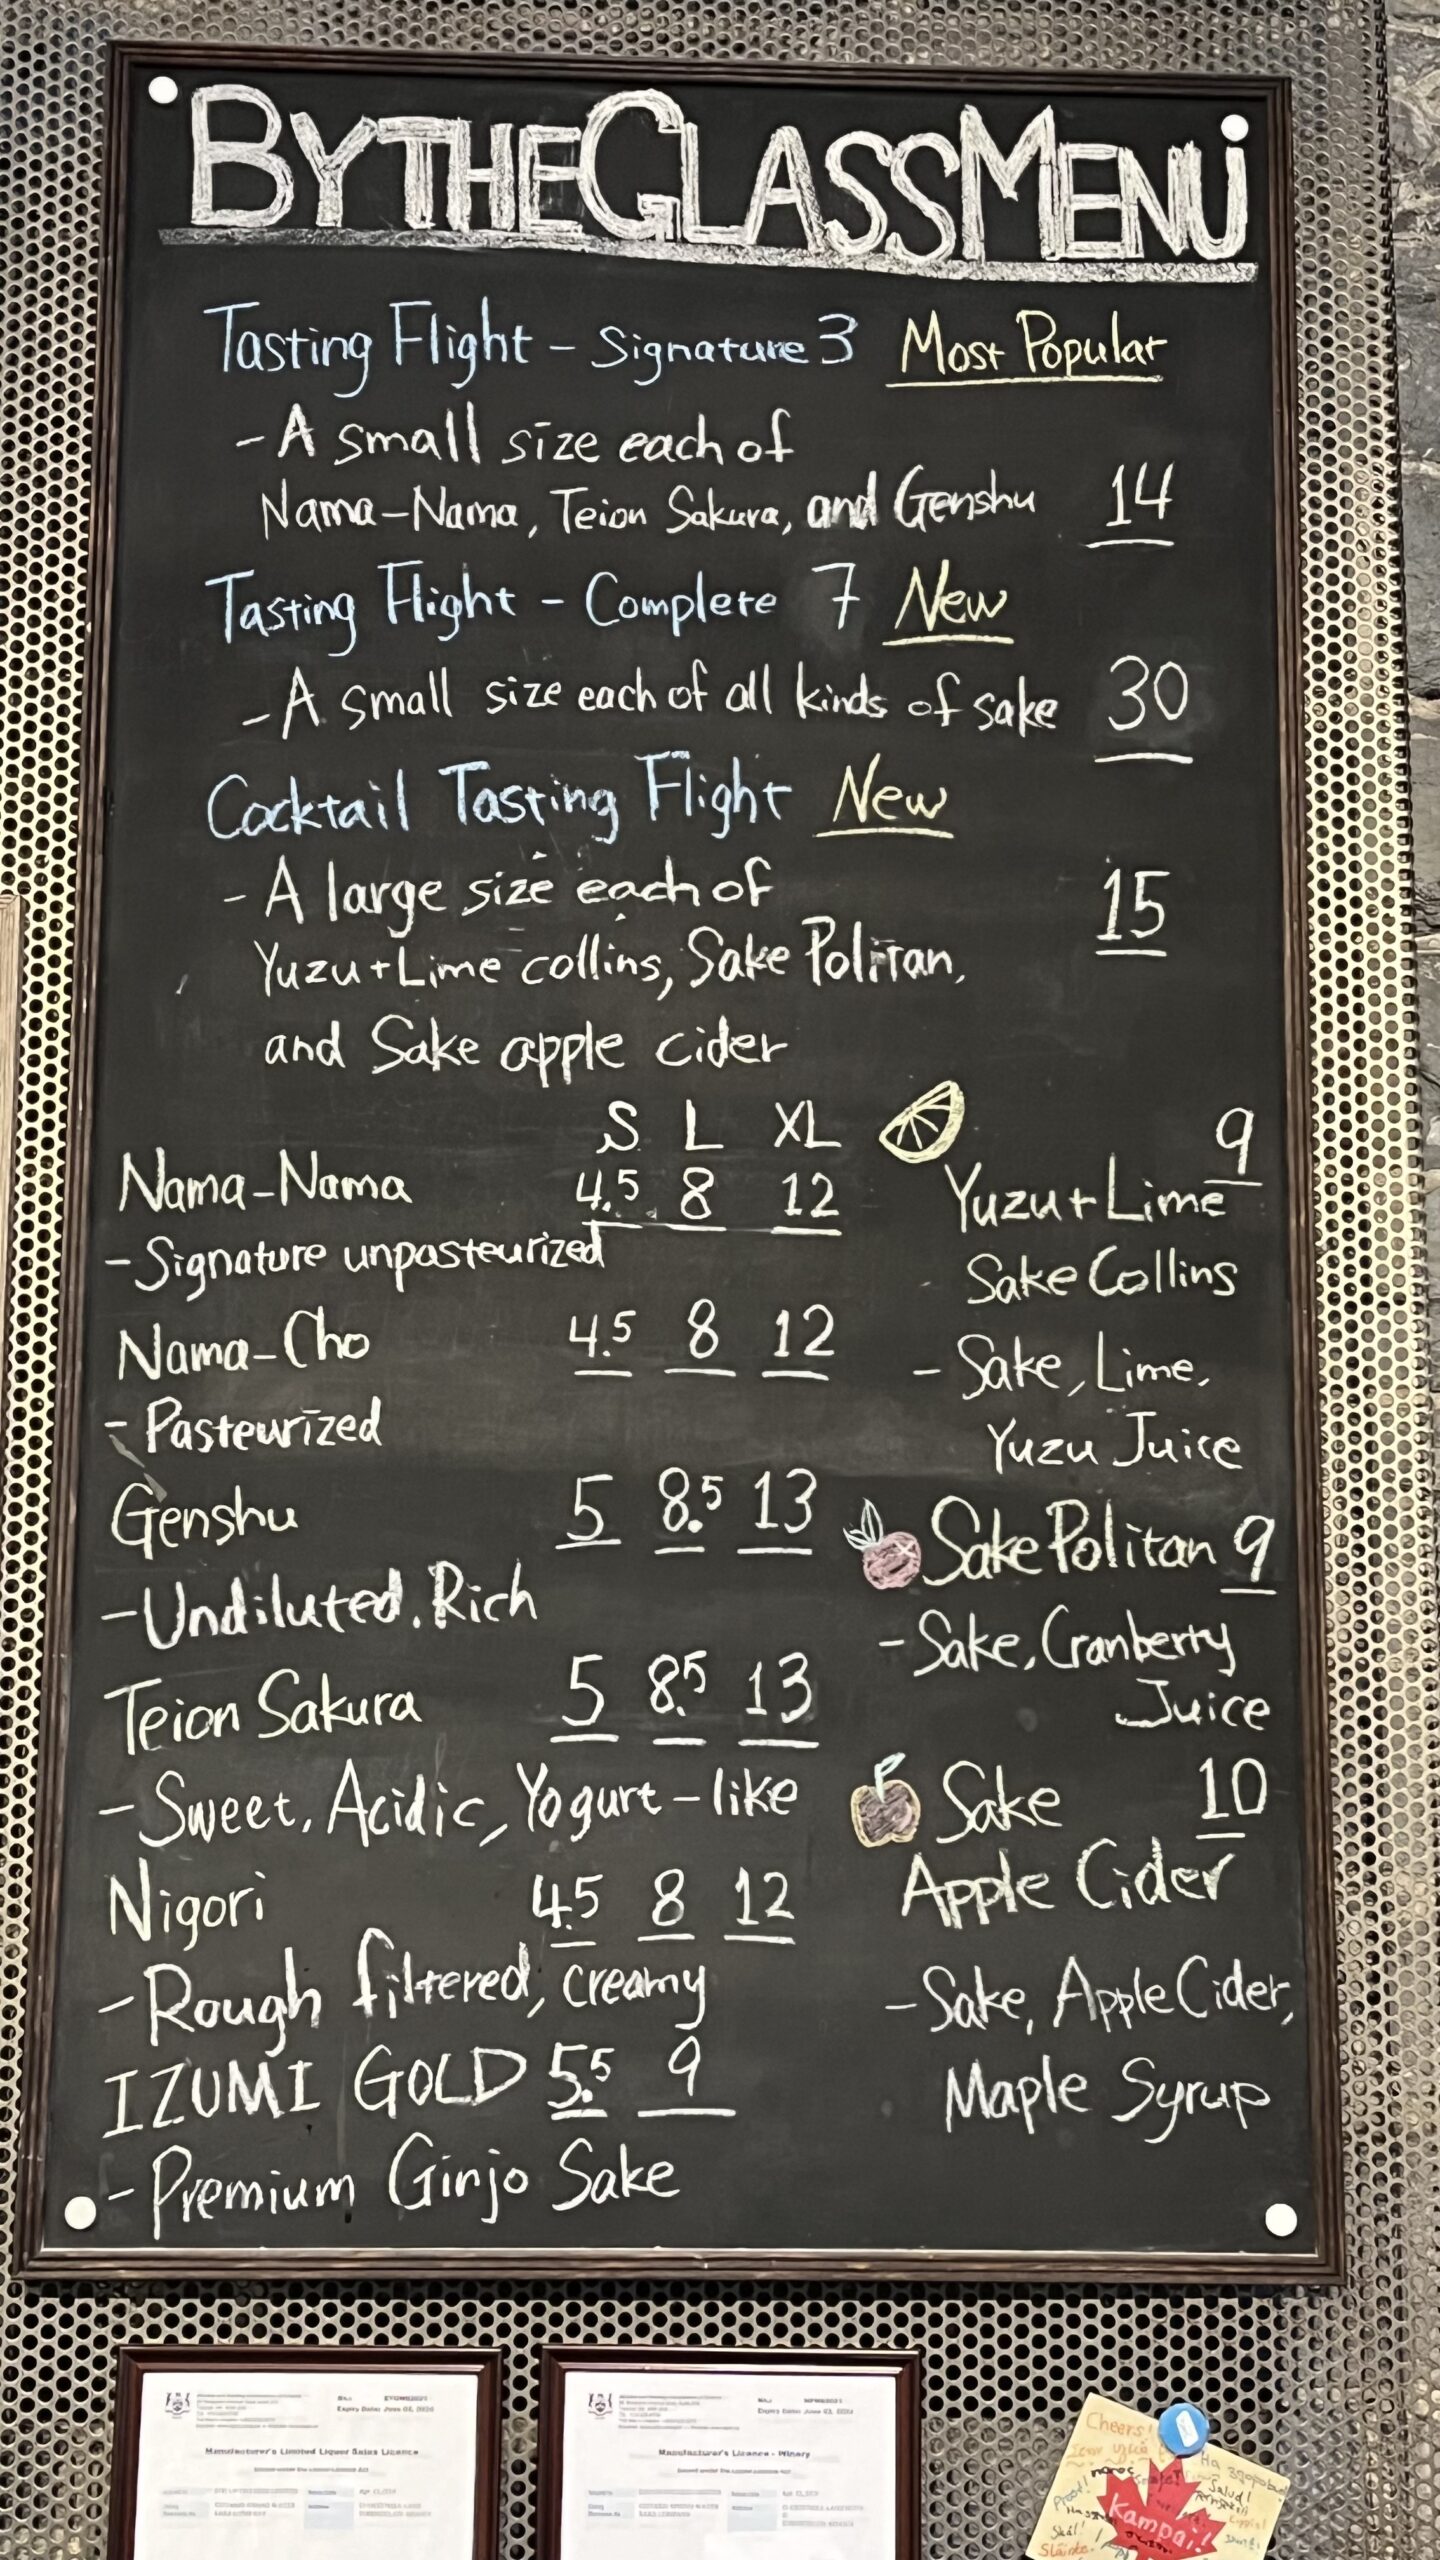 BY THE GLASS MENU
Tasting Flight - Signature 3 Most Popular
- A small size each of
Nama-Nama, Teion Sakura, and Genshu 14
Tasting Flight - Complete 7 New
- A small size each of all kinds of sake 30
Cocktail Tasting Flight New
- A large size each of 15
Yuzu + Lime collins, Sake Politan,
and Sake apple cider
S L XL
Nama-Nama 4.5 8 12
- Signature unpasteurized
Nama-Cho 4.5 8 12
- Pasteurized
Genshu 5 8.5 13
- Undiluted. Rich
Teion Sakura 5 8.5 13
- Sweet, Acidic, Yogurt-like
Nigori 4.5 8 12
- Rough filtered, creamy
IZUMI GOLD 5.5 9
- Premium Ginjo Sake
9
Yuzu + Lime
Sake Collins
- Sake, Lime,
Yuzu Juice
Sake Politan 9
- Sake, Cranberry
Juice
Sake 10
Apple Cider
- Sake, Apple Cider,
Maple Syrup
Manufacturer's Limited Liquor Sales Licence
Manufacturer's Licence - Winery
Cheers!
Salud!
Kampai!
Skål!
Sláinte